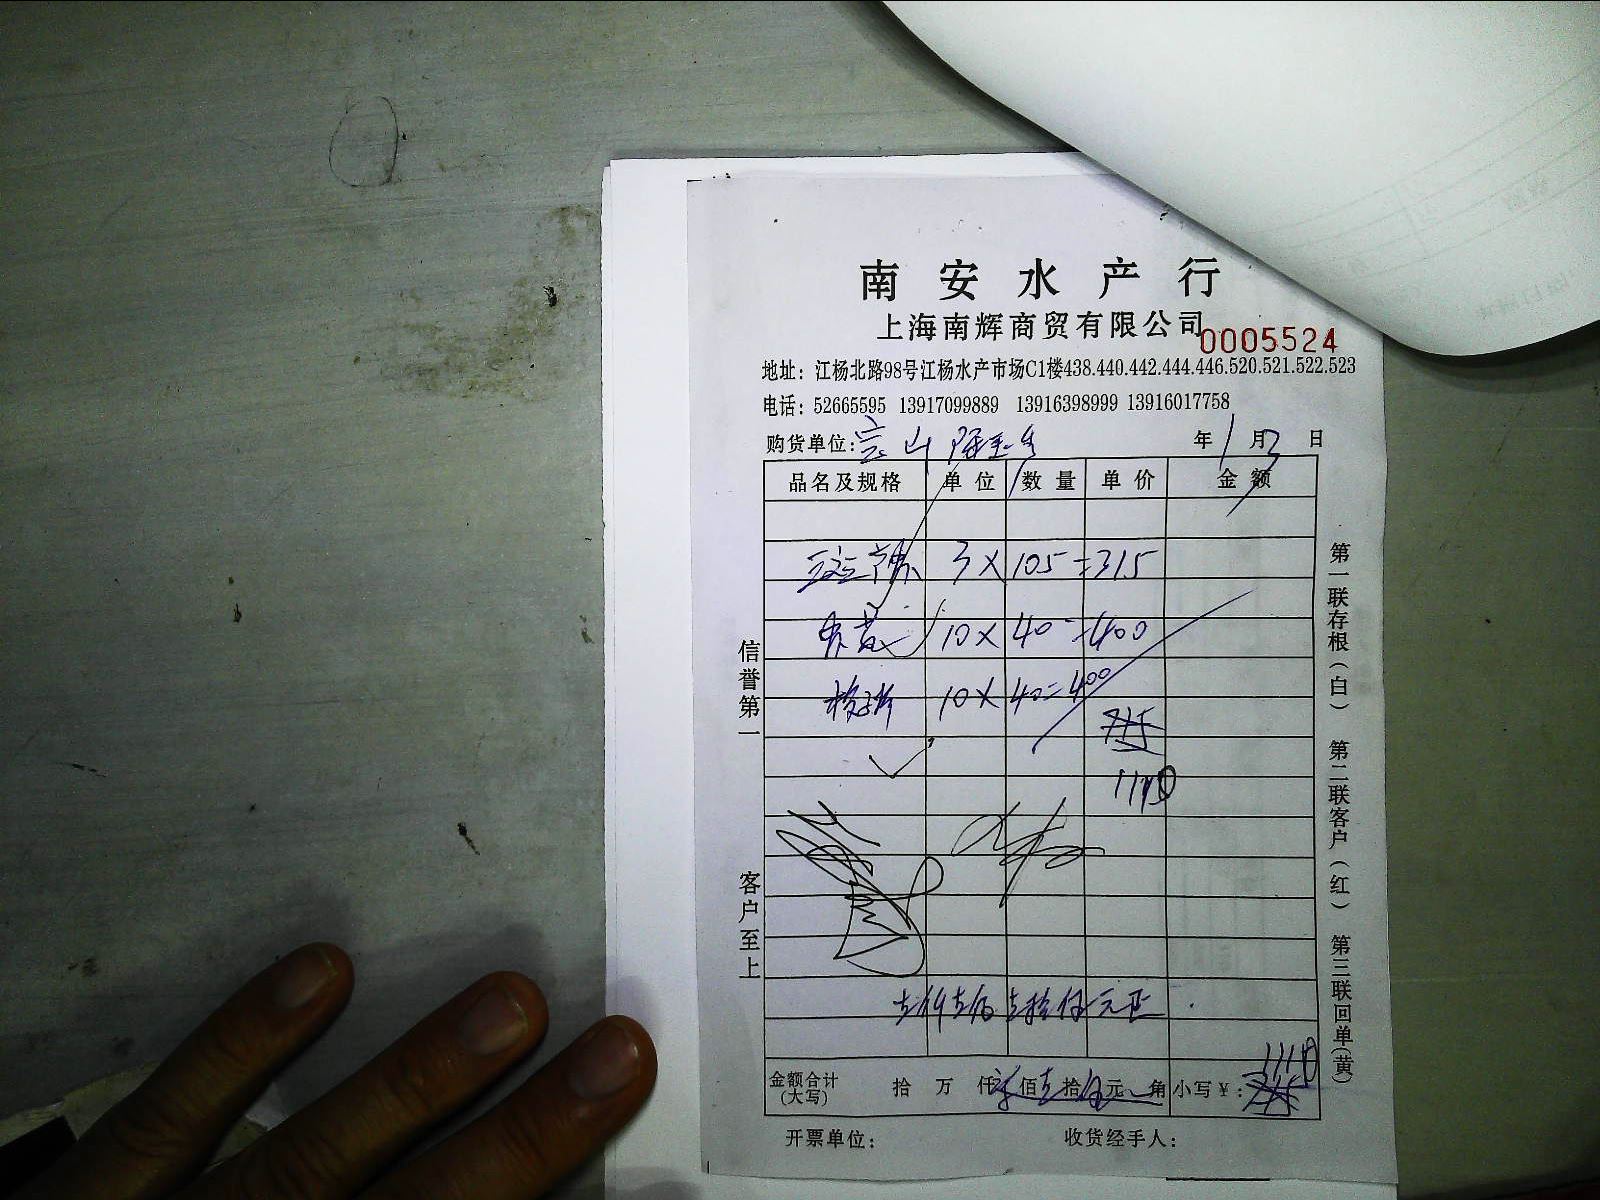 南安水产行
上海南辉商贸有限公司
0005524
地址：江杨北路98号江杨水产市场C1楼438.440.442.444.446.520.521.522.523
电话：52665595 13917099889 13916398999 13916017758
购货单位: 年 1 月 3 日
品名及规格 单位 数量 单价 金额
3 × 105 = 315
10 × 40 = 400
10 × 40 = 400
715
元正
金额合计(大写) 拾 万 仟 佰 拾 元 角 小写￥:
开票单位: 收货经手人:
信誉第一
客户至上
第一联存根(白) 第二联客户(红) 第三联回单(黄)